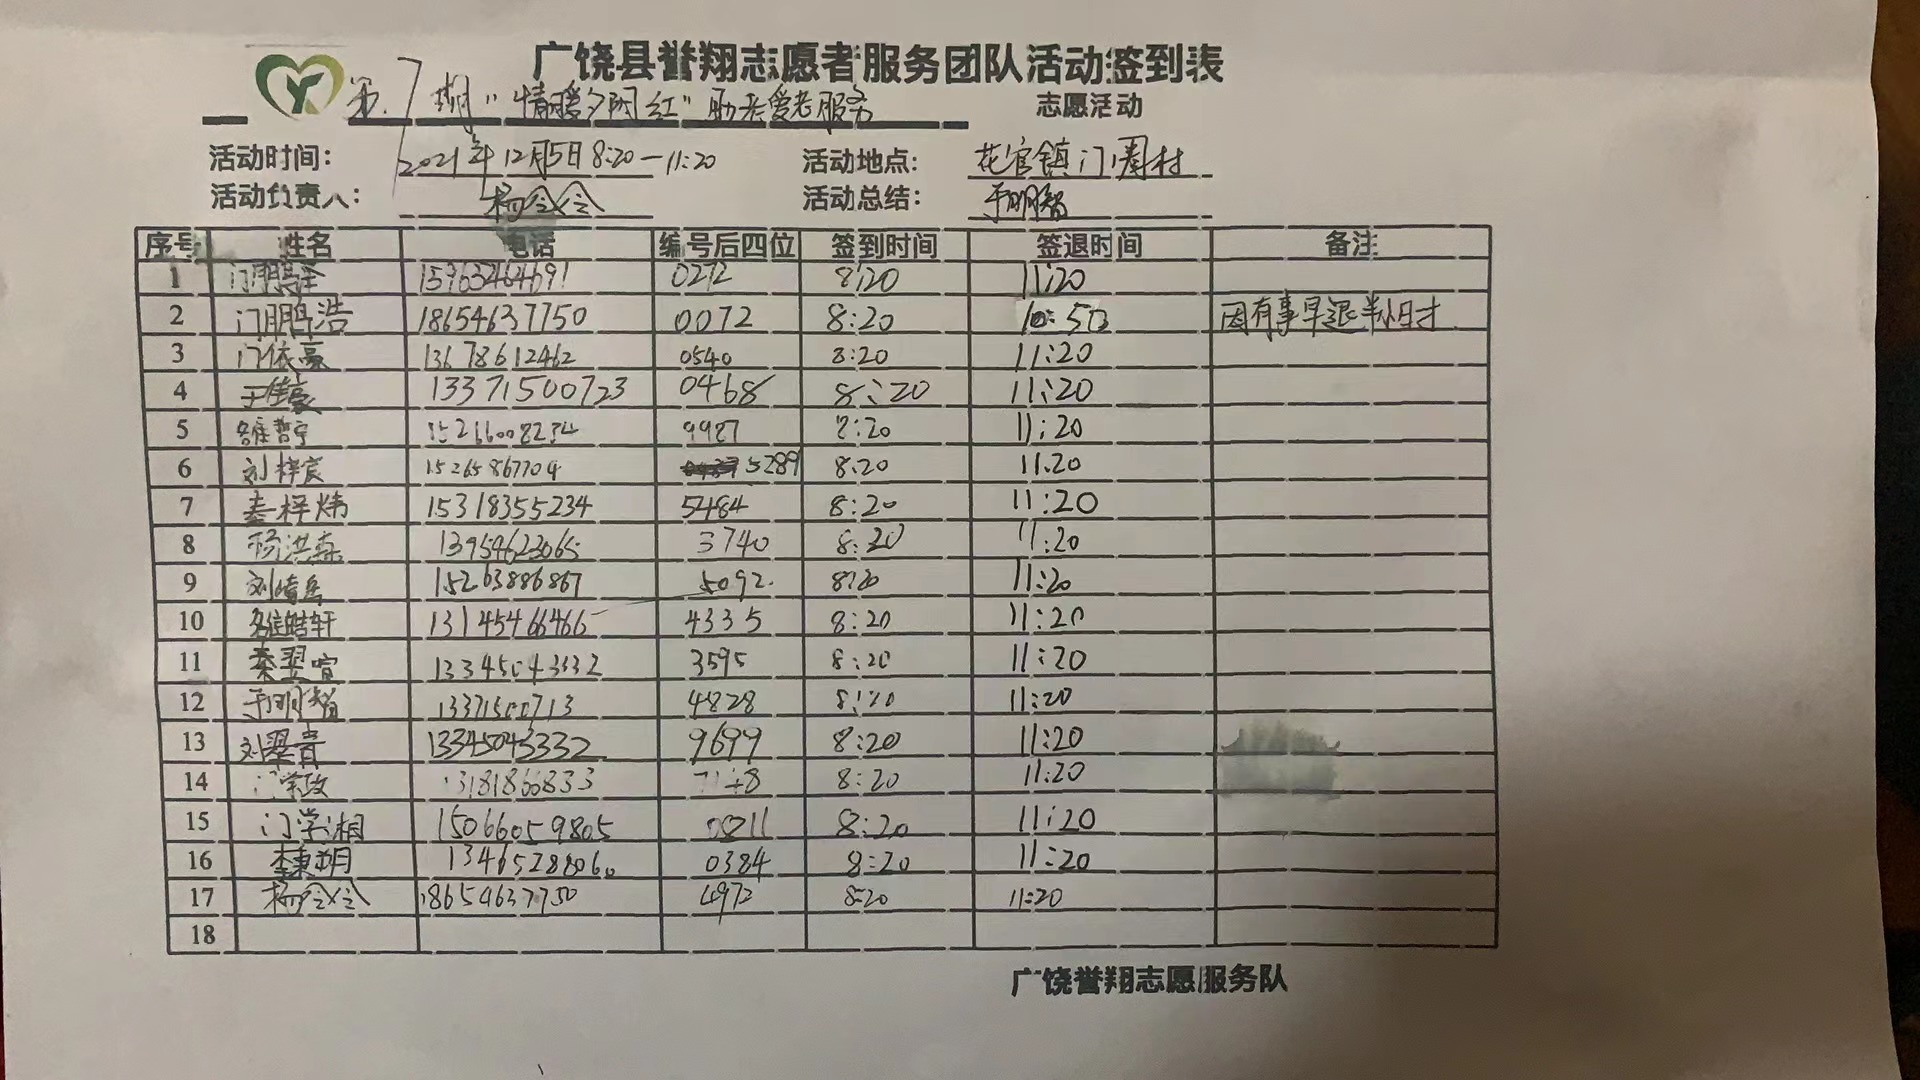 广饶县誉翔志愿者服务团队活动签到表
第7期“情暖夕阳红”助老爱老服务 志愿活动
活动时间: 2021年12月5日8:20—11:20 活动地点: 花官镇门圈村
活动负责人: 杨令令 活动总结: 于明智
序号 姓名 电话 编号后四位 签到时间 签退时间 备注
1 15963264691 0272 8:20 11:20
2 门鹏浩 18654637750 0072 8:20 10:50 因有事早退半小时
3 门依豪 13678612462 0540 8:20 11:20
4 于佳豪 13371500723 0468 8:20 11:20
5 雒哲宁 15266008234 9987 8:20 11:20
6 刘梓宸 15265867704 5289 8:20 11:20
7 秦梓炜 15318355234 5484 8:20 11:20
8 杨洪森 13954623065 3740 8:20 11:20
9 15263886867 5092 8:20 11:20
10 雒皓轩 13145466466 4335 8:20 11:20
11 秦翌喧 13345043332 3595 8:20 11:20
12 于明智 13371500713 4828 8:20 11:20
13 刘翠青 13345043332 9699 8:20 11:20
14 门学政 13181866833 8:20 11:20
15 门学湘 15066059805 0811 8:20 11:20
16 李秉玥 13465288060 0384 8:20 11:20
17 杨令令 18654637750 4972 8:20 11:20
18
广饶誉翔志愿服务队